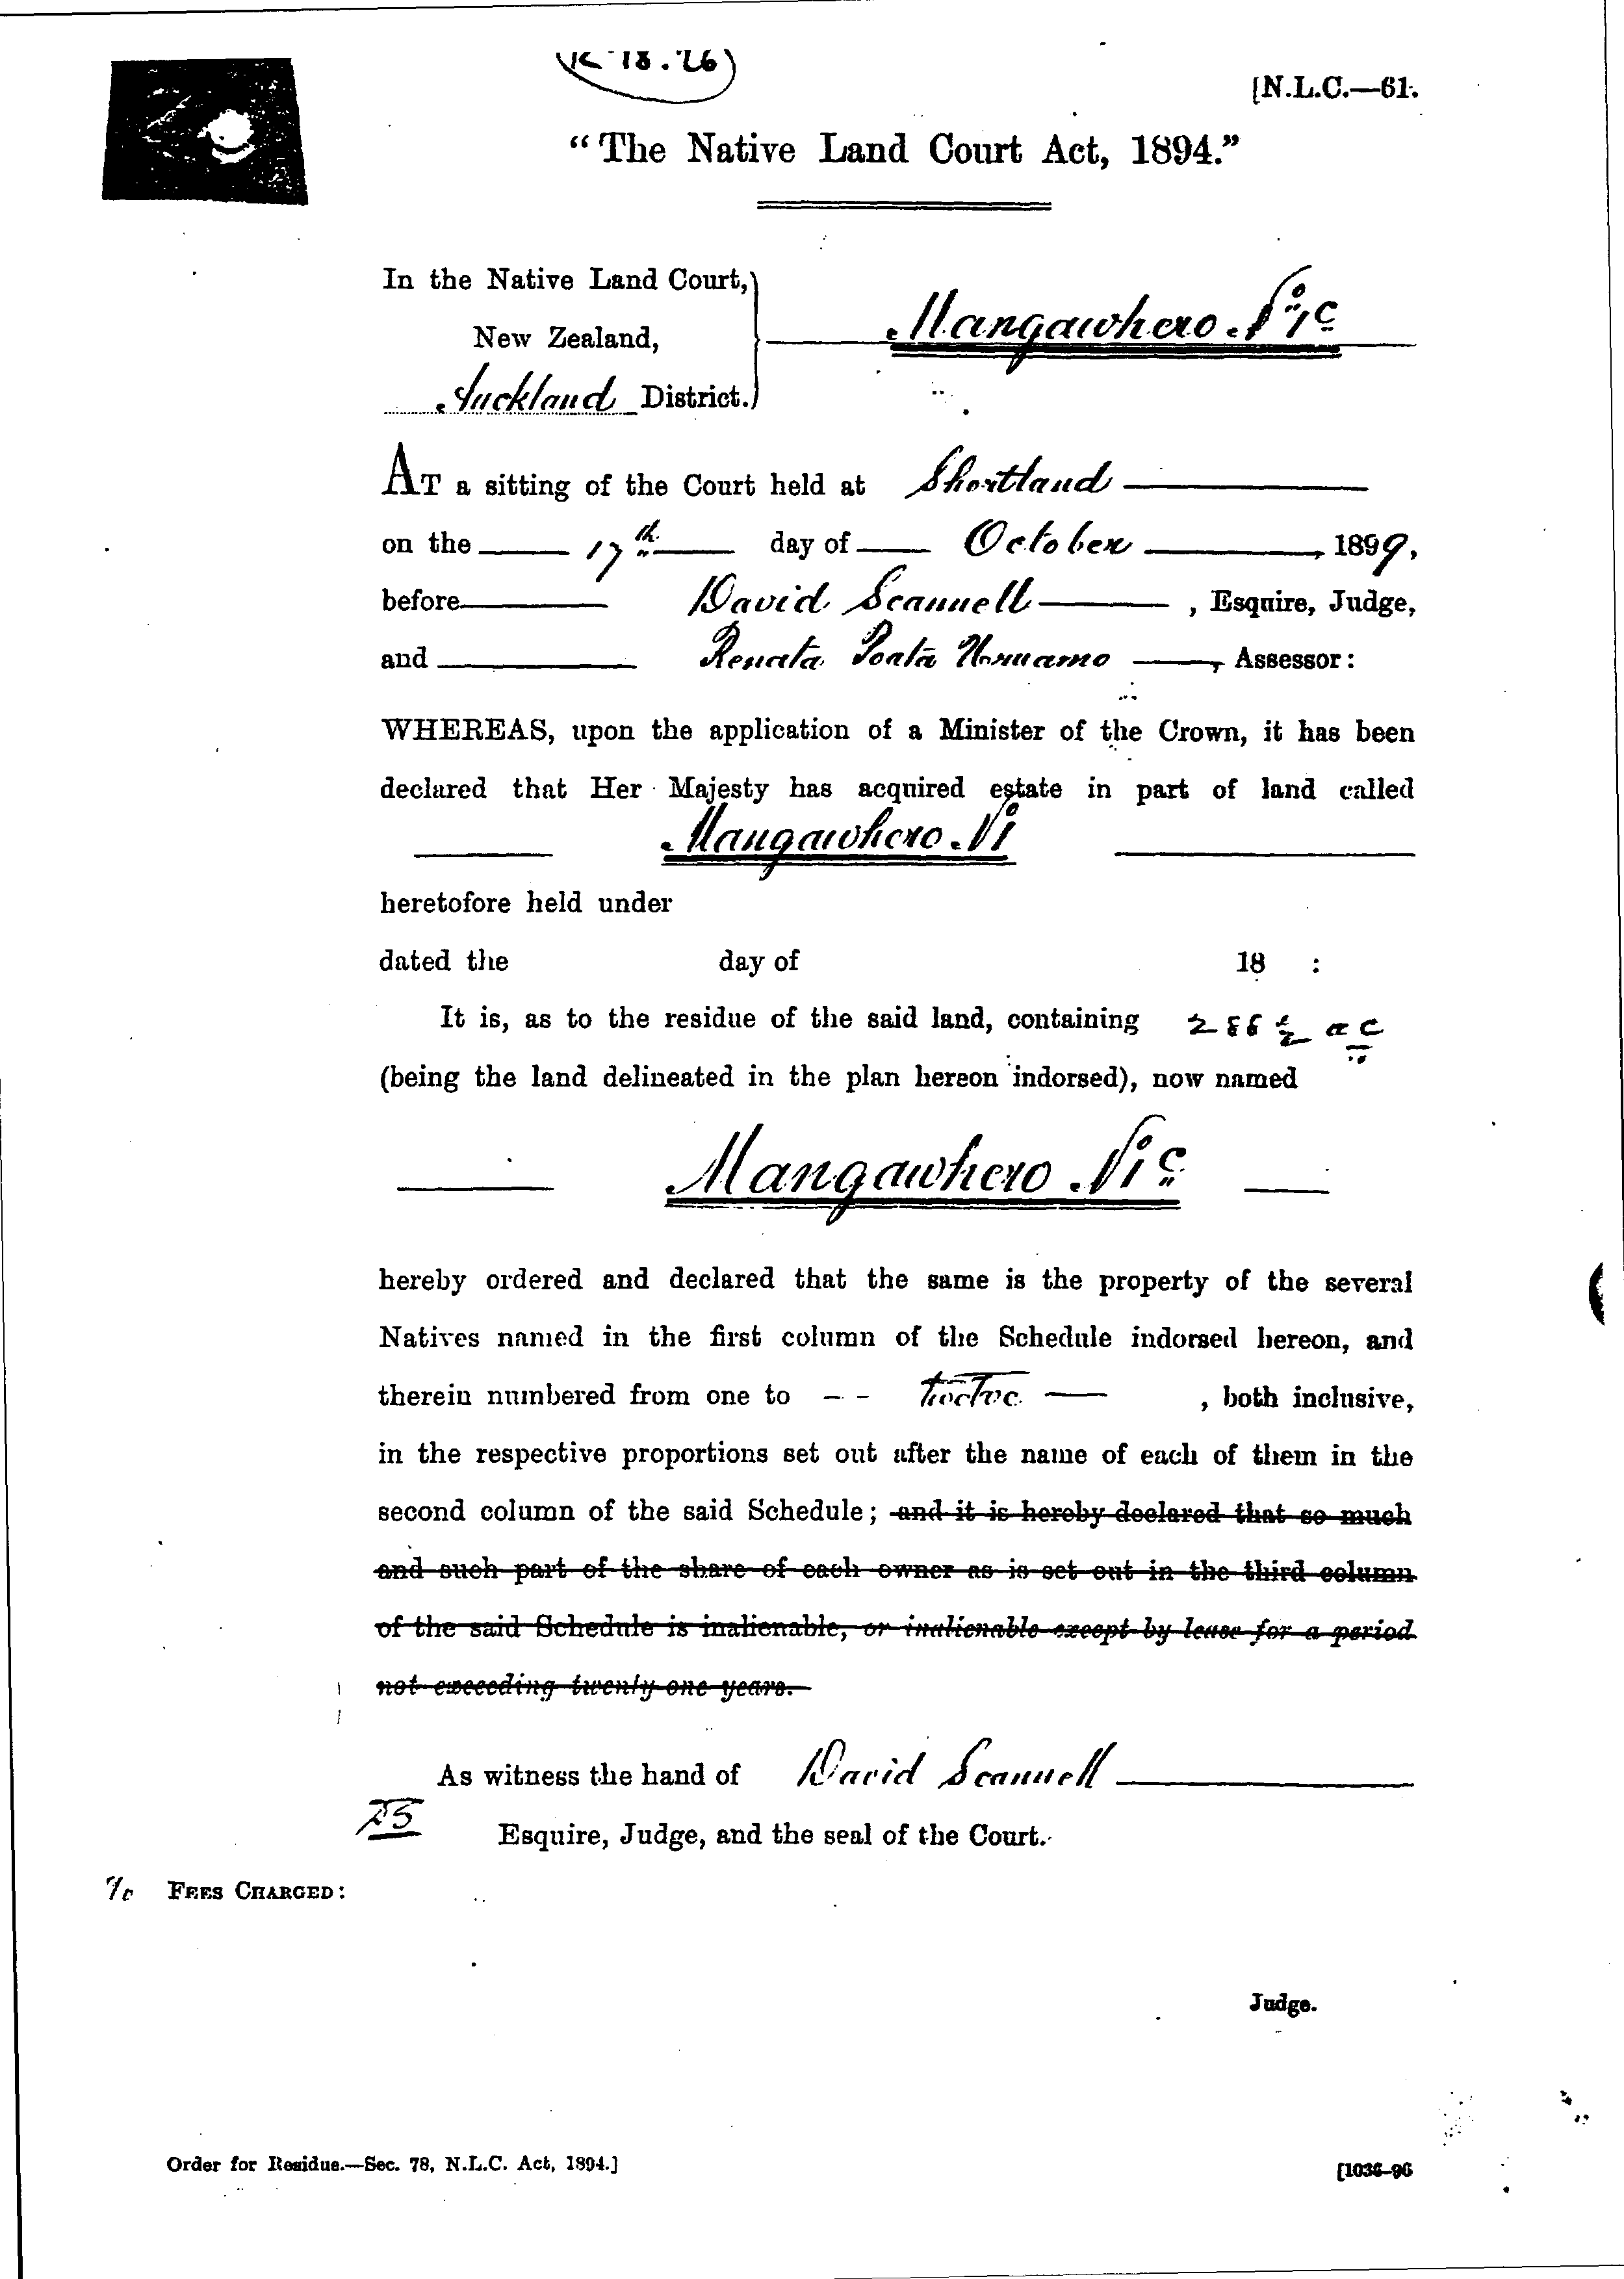 [N.L.C.—61.
“The Native Land Court Act, 1894.”
In the Native Land Court,
New Zealand,
Mangawhero No 1C
Auckland District.
AT a sitting of the Court held at Shortland
on the 17th day of October, 1899,
before David Scannell, Esquire, Judge,
and Renata, Assessor:
WHEREAS, upon the application of a Minister of the Crown, it has been
declared that Her Majesty has acquired estate in part of land called
Mangawhero No 1
heretofore held under
dated the day of 18 :
It is, as to the residue of the said land, containing ac
(being the land delineated in the plan hereon indorsed), now named
Mangawhero No 1C
hereby ordered and declared that the same is the property of the several
Natives named in the first column of the Schedule indorsed hereon, and
therein numbered from one to -- twelve — , both inclusive,
in the respective proportions set out after the name of each of them in the
second column of the said Schedule; and it is hereby declared that so much
and such part of the share of each owner as is set out in the third column
of the said Schedule is inalienable, or inalienable except by lease for a period
not exceeding twenty-one years.
As witness the hand of David Scannell
Esquire, Judge, and the seal of the Court.
FEES CHARGED:
Judge.
Order for Residue.—Sec. 78, N.L.C. Act, 1894.]
[1036-96